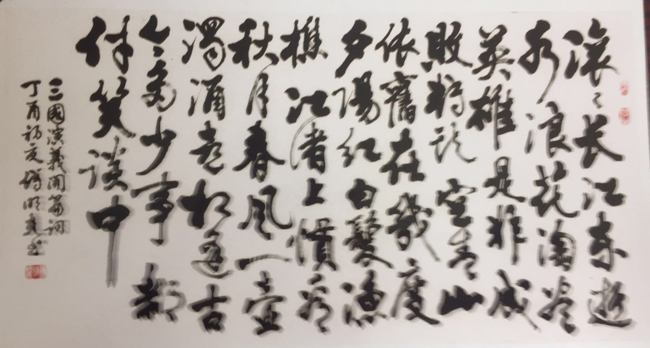 滚々长江东逝
水浪花淘尽
英雄是非成
败转头空青山
依舊在幾度
夕陽红白髮漁
樵江渚上惯看
秋月春风一壶
濁酒喜相逢古
今多少事都
付笑谈中
三國演義開篇詞
丁酉初夏 书